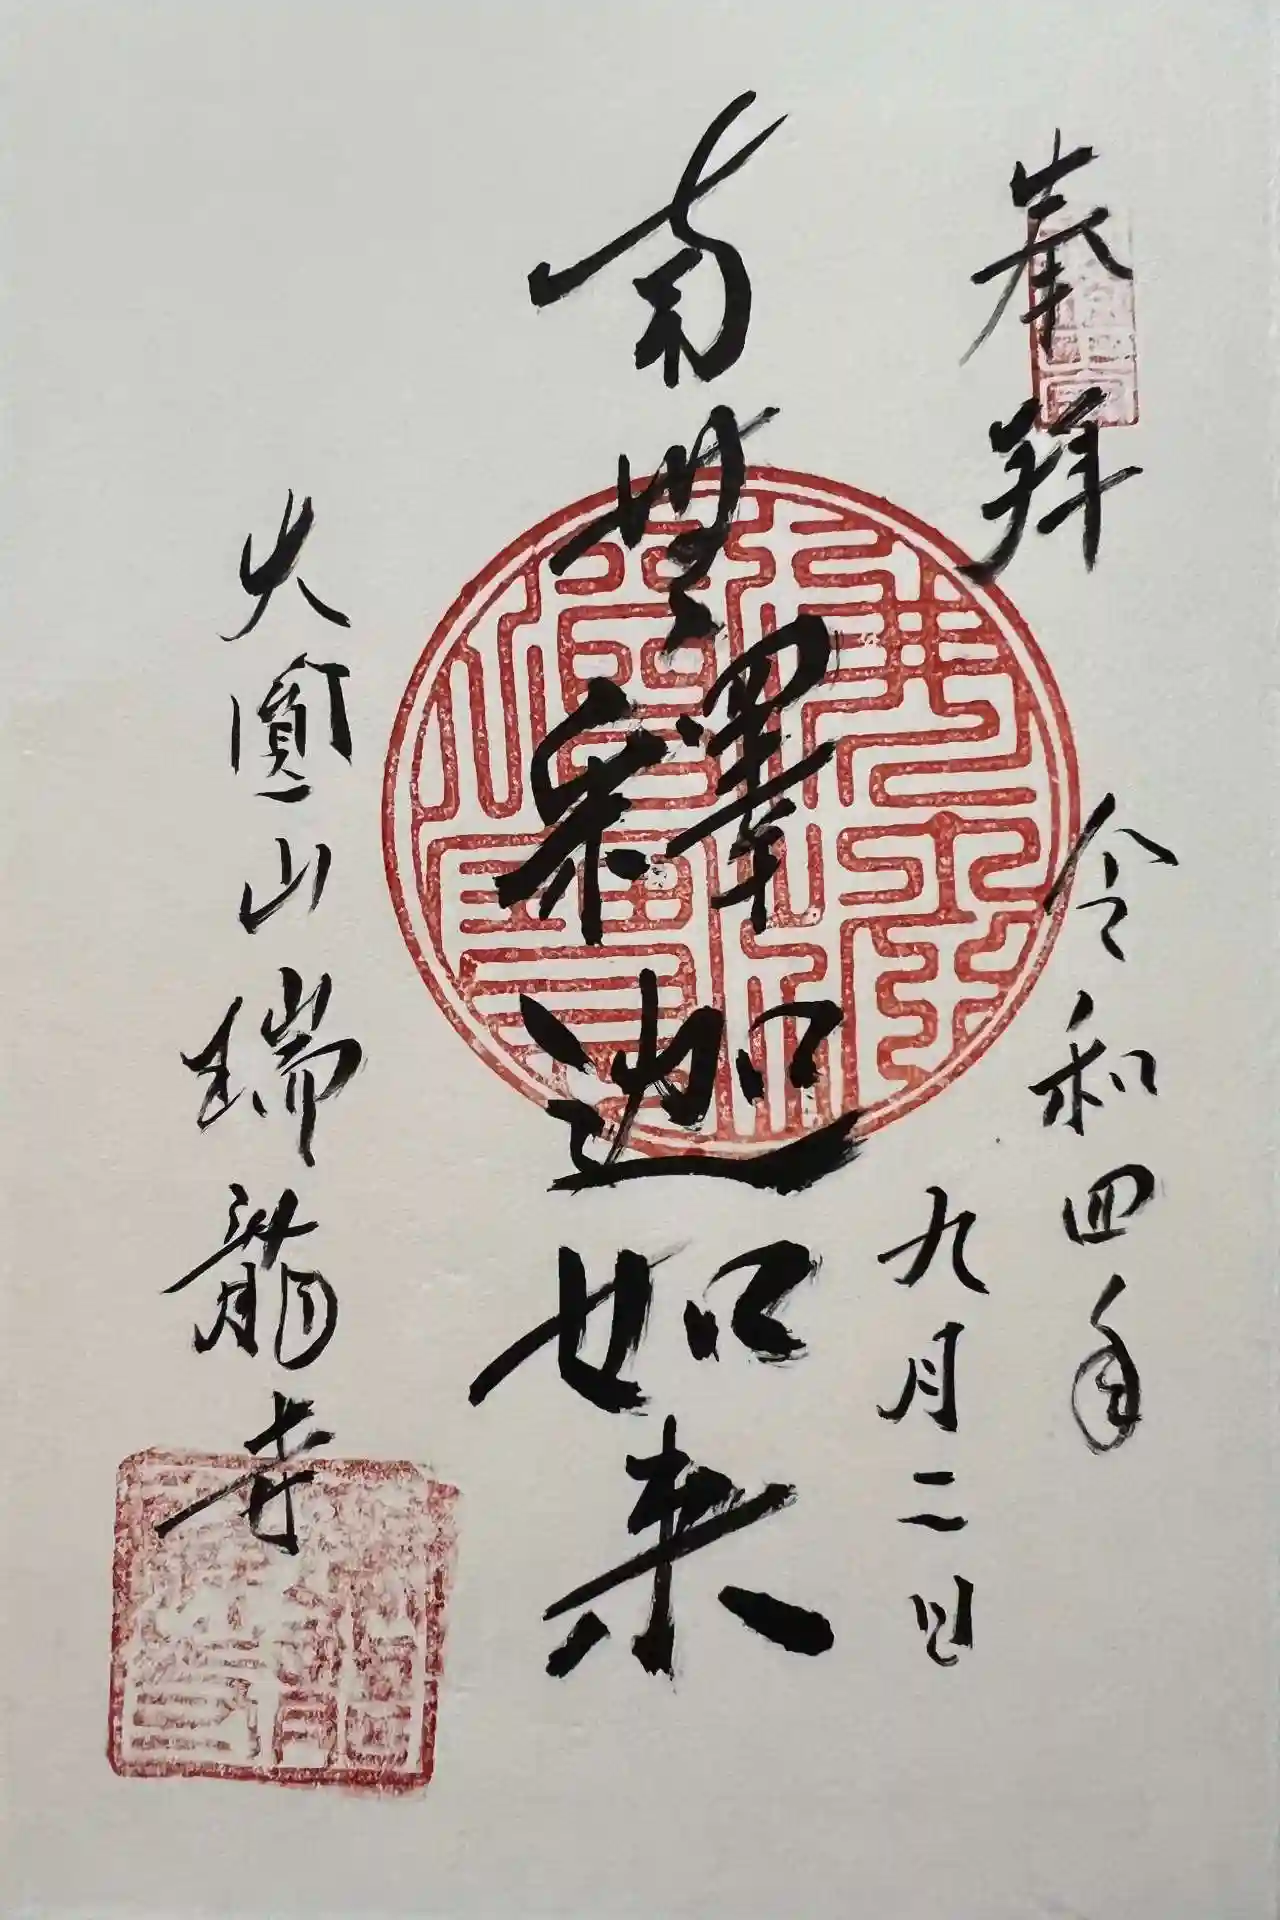 奉拜
令和四年
九月二日
南無釋迦如来
大圓山瑞龍寺